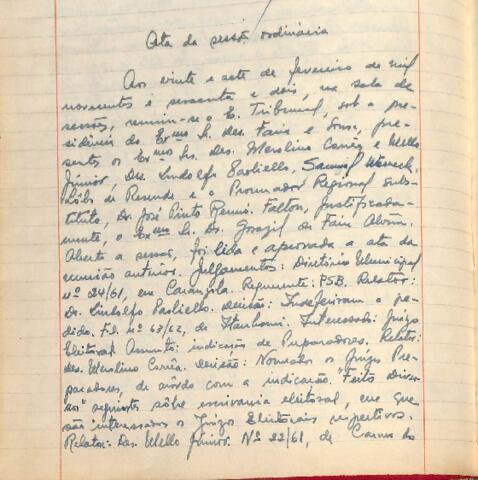 Ata da sessão ordinária
Aos vinte e sete de fevereiro de mil
novecentos e sessenta e dois, na sala de
sessões, reuniu-se o E. Tribunal, sob a pre-
sidência do Exmo Sr. Des. Faria e Sousa, pre-
sentes os Exmos Srs. Des. Merolino Corrêa e Mello
Júnior, Drs. Lindolfo Paoliello, Samuel Werneck,
Lôbo de Resende e o Procurador Regional Subs-
tituto, Dr. José Pinto Renó. Faltou, justificada-
mente, o Exmo Sr. Dr. de Faria Alvim.
Aberta a sessão, foi lida e aprovada a ata da
reunião anterior. Julgamentos: Diretório Municipal
nº 24/61, em Carangola. Requerente: PSB. Relator:
Dr. Lindolfo Paoliello. Decisão: Indeferiram o pe-
dido. nº 63/62, de Itanhomi. Interessado: Juízo
Eleitoral. Assunto: indicação de Preparadores. Relator:
Des. Merolino Corrêa. Decisão: Nomeados os Juízes Pre-
paradores, de acôrdo com a indicação. "Feitos Diver-
sos" seguintes sôbre escrivania eleitoral, em que
são interessados os Juízos Eleitorais respectivos.
Relator: Des. Mello Júnior. Nº 22/61, de Carmo do